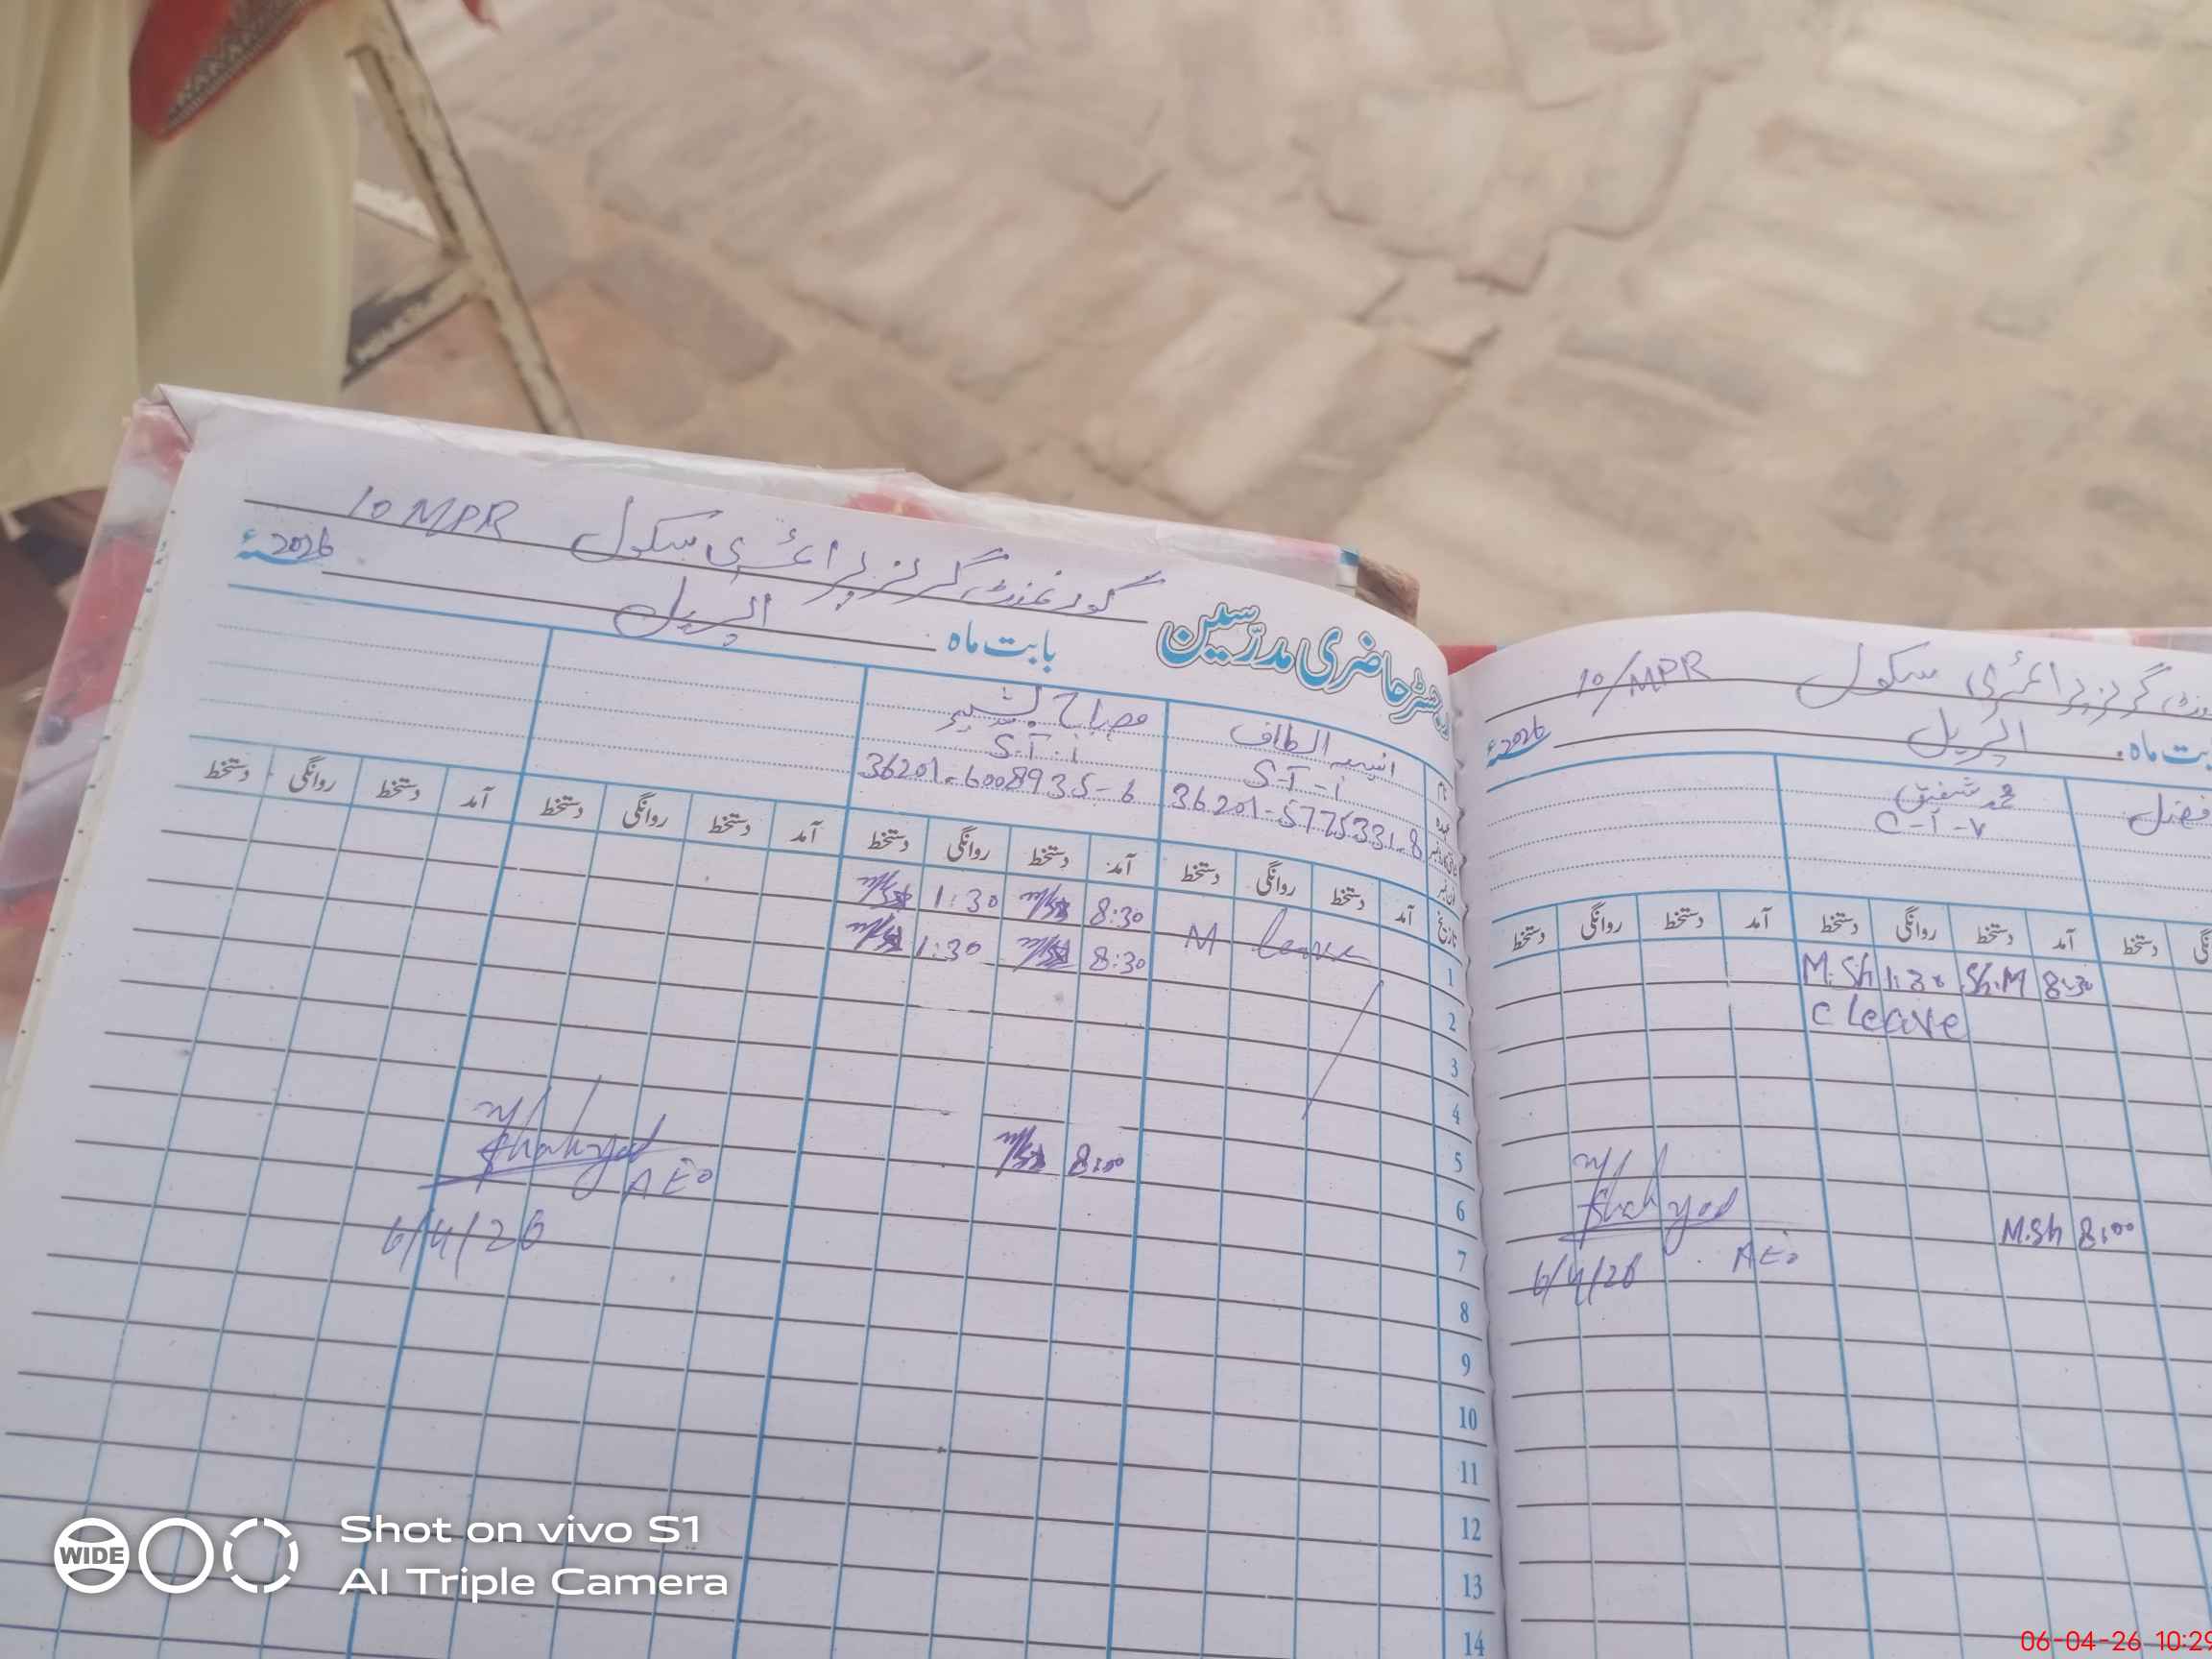 گورنمنٹ گرلز پرائمری سکول 10 MPR
رجسٹر حاضری مدرّسین
بابت ماہ اپریل 2026ء
انیسہ الطاف
S-T-i
36201-5775331-8
مصباح بشیر
S-T-i
36201-6008935-6
آمد دستخط روانگی دستخط آمد دستخط روانگی دستخط آمد دستخط روانگی دستخط آمد دستخط روانگی دستخط
تاریخ
1 leave M 8:30 1:30
2 8:30 1:30
3
4
5
6 8:00
7
8
9
10
11
12
13
14
Shahzad
AEO
6/4/26
گرلز پرائمری سکول 10/MPR
بابت ماہ اپریل 2026ء
افضل
محمد شفیق
C-I-V
دستخط آمد دستخط روانگی دستخط آمد دستخط روانگی دستخط
8:30 Sh.M 1:30 M.Sh
C leave
M.Sh 8:00
Shahzad
AEO
6/4/26
WIDE
Shot on vivo S1
AI Triple Camera
06-04-26 10:29